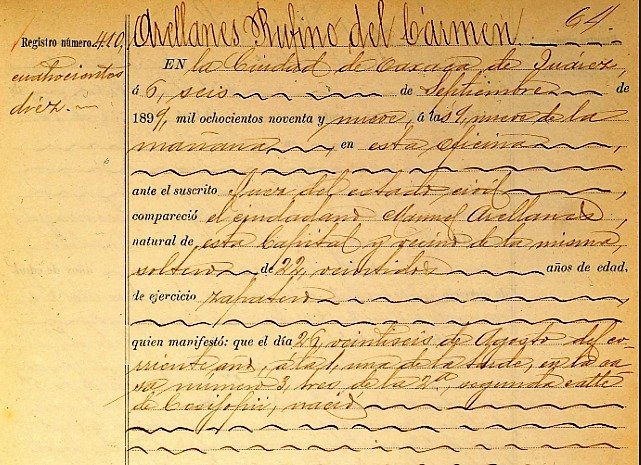 Arellanes Rufino del Cármen. 64.
Registro número 410,
cuatrocientos
diez.
EN la Ciudad de Oaxaca de Juárez,
á 6, seis de Septiembre de
1899, mil ochocientos noventa y nueve, á las 9, nueve de la
mañana, en esta Oficina,
ante el suscrito Juez del estado civil
compareció el ciudadano Manuel Arellanes,
natural de esta Capital y vecino de la misma,
soltero de 22, veintidos años de edad,
de ejercicio zapatero
quien manifestó: que el día 26, veintiseis de Agosto del co-
rriente año, á la 1, una de la tarde, en la ca-
sa número 3, tres de la 2a, segunda calle
de Cosijopii, nació